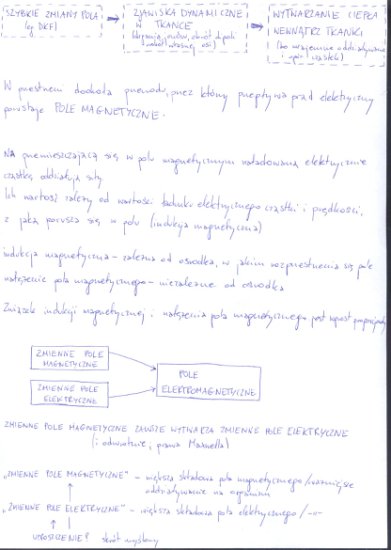 SZYBKIE ZMIANY POLA
(np DKF)
ZJAWISKA DYNAMICZNE
W TKANCE
(drgania, ruchów, obrót dipoli
dookoła własnej osi)
WYTWARZANIE CIEPŁA
WEWNĄTRZ TKANKI
(bo wzajemne oddziaływanie
i opór cząstek)
W przestrzeni dookoła przewodu, przez który przepływa prąd elektryczny
powstaje POLE MAGNETYCZNE.
NA przemieszczającą się w polu magnetycznym naładowaną elektrycznie
cząstkę oddziałują siły
Ich wartość zależy od wartości ładunku elektrycznego cząstki i prędkości,
z jaką porusza się w polu (indukcja magnetyczna)
indukcja magnetyczna - zależna od ośrodka, w jakim rozprzestrzenia się pole
natężenie pola magnetycznego - niezależne od ośrodka
Związek indukcji magnetycznej i natężenia pola magnetycznego jest wprost proporcjonalny
ZMIENNE POLE
MAGNETYCZNE
ZMIENNE POLE
ELEKTRYCZNE
POLE
ELEKTROMAGNETYCZNE
ZMIENNE POLE MAGNETYCZNE ZAWSZE WYTWARZA ZMIENNE POLE ELEKTRYCZNE
(i odwrotnie, prawa Maxwella)
"ZMIENNE POLE MAGNETYCZNE" - większa składowa pola magnetycznego / ważniejsze
oddziaływanie na organizm
"ZMIENNE POLE ELEKTRYCZNE" - większa składowa pola elektrycznego / -"-
UPROSZCZENIE? skrót myślowy